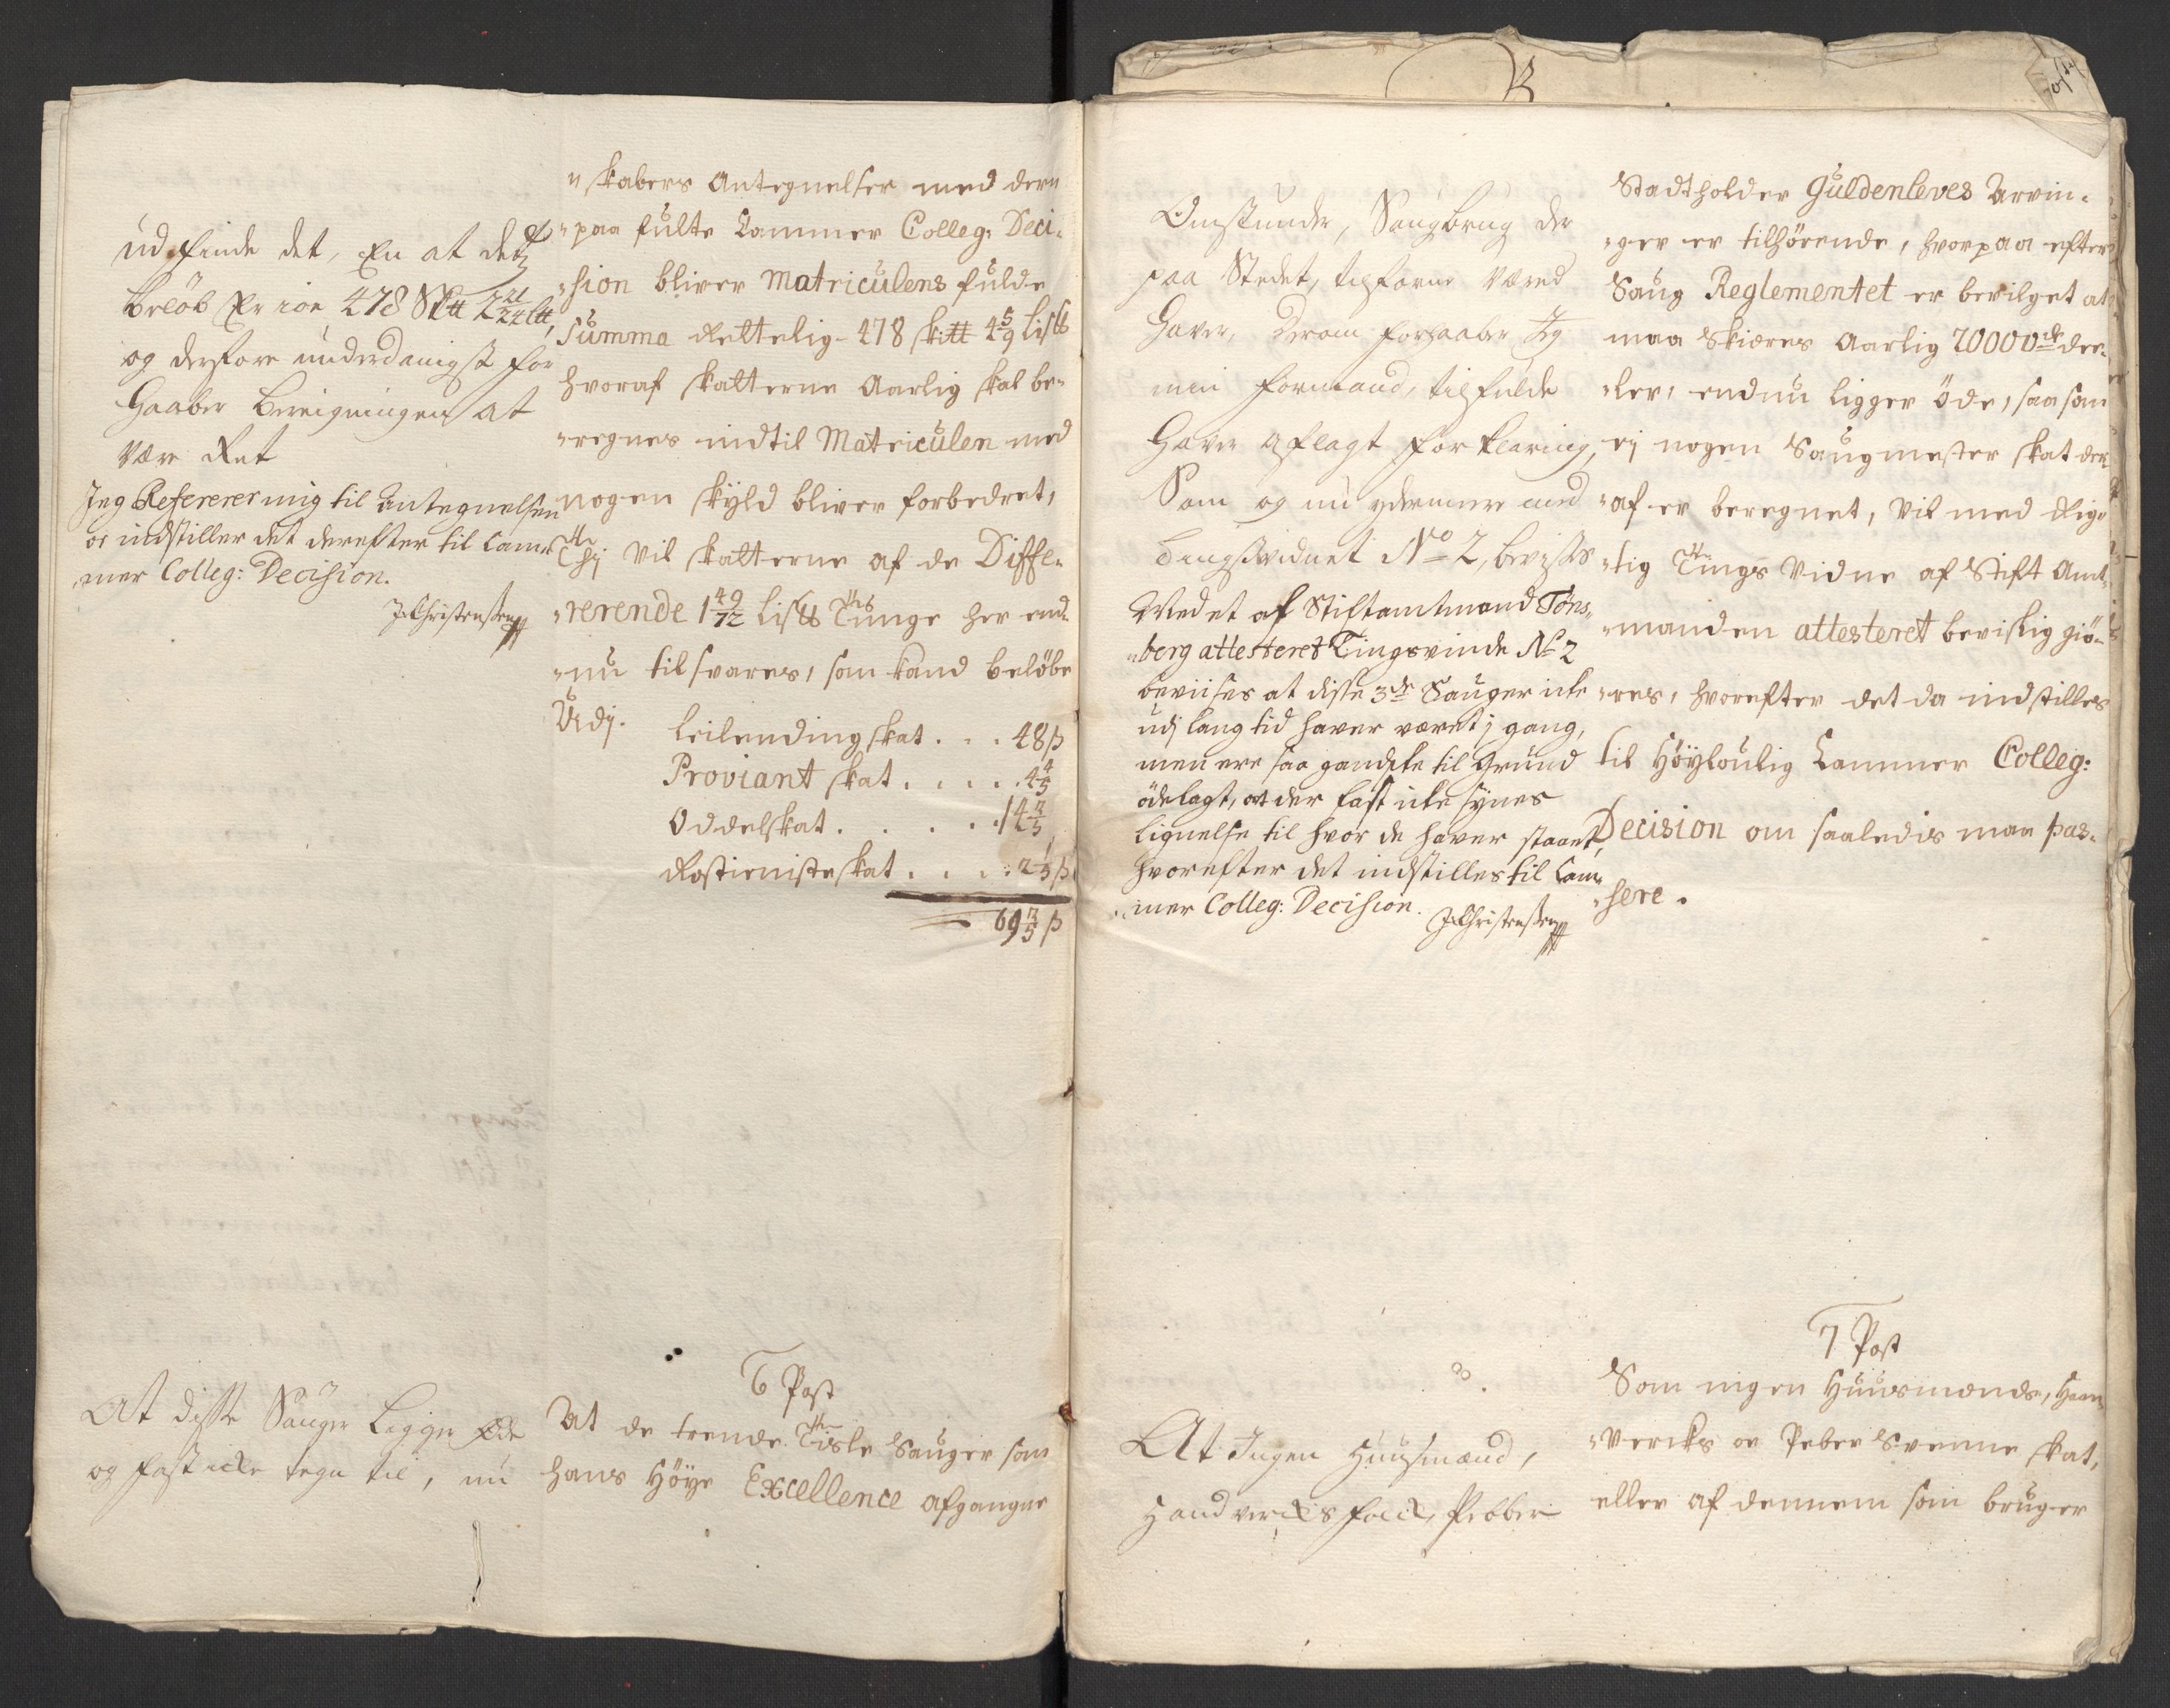 ud finde det, En at det
beløb Er ion 478 Sk℔ 2 21/24 l℔,
og derfore underdanigst for
haaber bereigningen at
være Ret
Jeg Refererer mig til Antegnelsen
oc indstiller det derefter til Cam-
mer Colleg: Decision.
J Christenssen
At disse Sauger Ligger øde
og fast icke tegn til, nu
skabers Antegnelser med dern
paa fulte Cammer Colleg: Deci-
sion bliver Matriculens fulde
Summa Rettelig 478 sk℔ 4 5/9 lis℔
hvoraf skatterne Aarlig skal be-
regnes indtil Matriculen med
nogen skyld bliver forbedret,
Thj vil skatterne af de Diffe-
rerende 1 49/72 lis℔ Tunge her end-
nu tilsvares, som kand beløbe
Udj.
Leilending skat . . . 48 ß
Proviant skat . . . . . 4 4/5
Oddelskat . . . . . 14 2/5
Rostieniste skat . . . . 2 2/5 ß
69 3/5 ß
6 Post
At de trende Tisle Sauger som
hans Høye Excellence afgangne
Omstunder, Saugbrug der
paa Stedet, tilforne Været
Haver, derom forhaaber Jeg
min formand, til fulde
Haver aflagt forklaring,
Som og nu ydermere med
Tingsvidnet No 2, bevises
Med et af Stiftamtmand Tøns-
berg attesteret Tingsvinde No 2
beviises at disse 3de Sauger icke
udj lang tid haver været j gang,
men ere saa gandske til Grund
ødelagt, at der fast icke synes
lignelse til hvor de haver staaet,
hvorefter det indstilles til Cam-
mer Colleg: Decision.
J Christenssen
At Ingen Huusmænd,
Handvercks folck, Pebber
Stadtholder Guldenleves Arvin-
ger er tilhørende, hvorpaa efter
Saug Reglementet er bevilget at
maa Skieres Aarlig 7000 de-
ler, endnu ligger øde, saa som
ej nogen Saugmester skat der
af er beregnet, vil med Rig-
tig Tings Vidne af Stift Amt-
manden attesteret bevislig giø-
res, hvorefter det da indstilles
til Høyloulig Cammer Colleg:
Decision om saaledis maa pas-
sere.
7 Post
Som ingen Huusmænds, Haan-
Vercks oc Peber Svenne skat,
eller af dennem som bruger